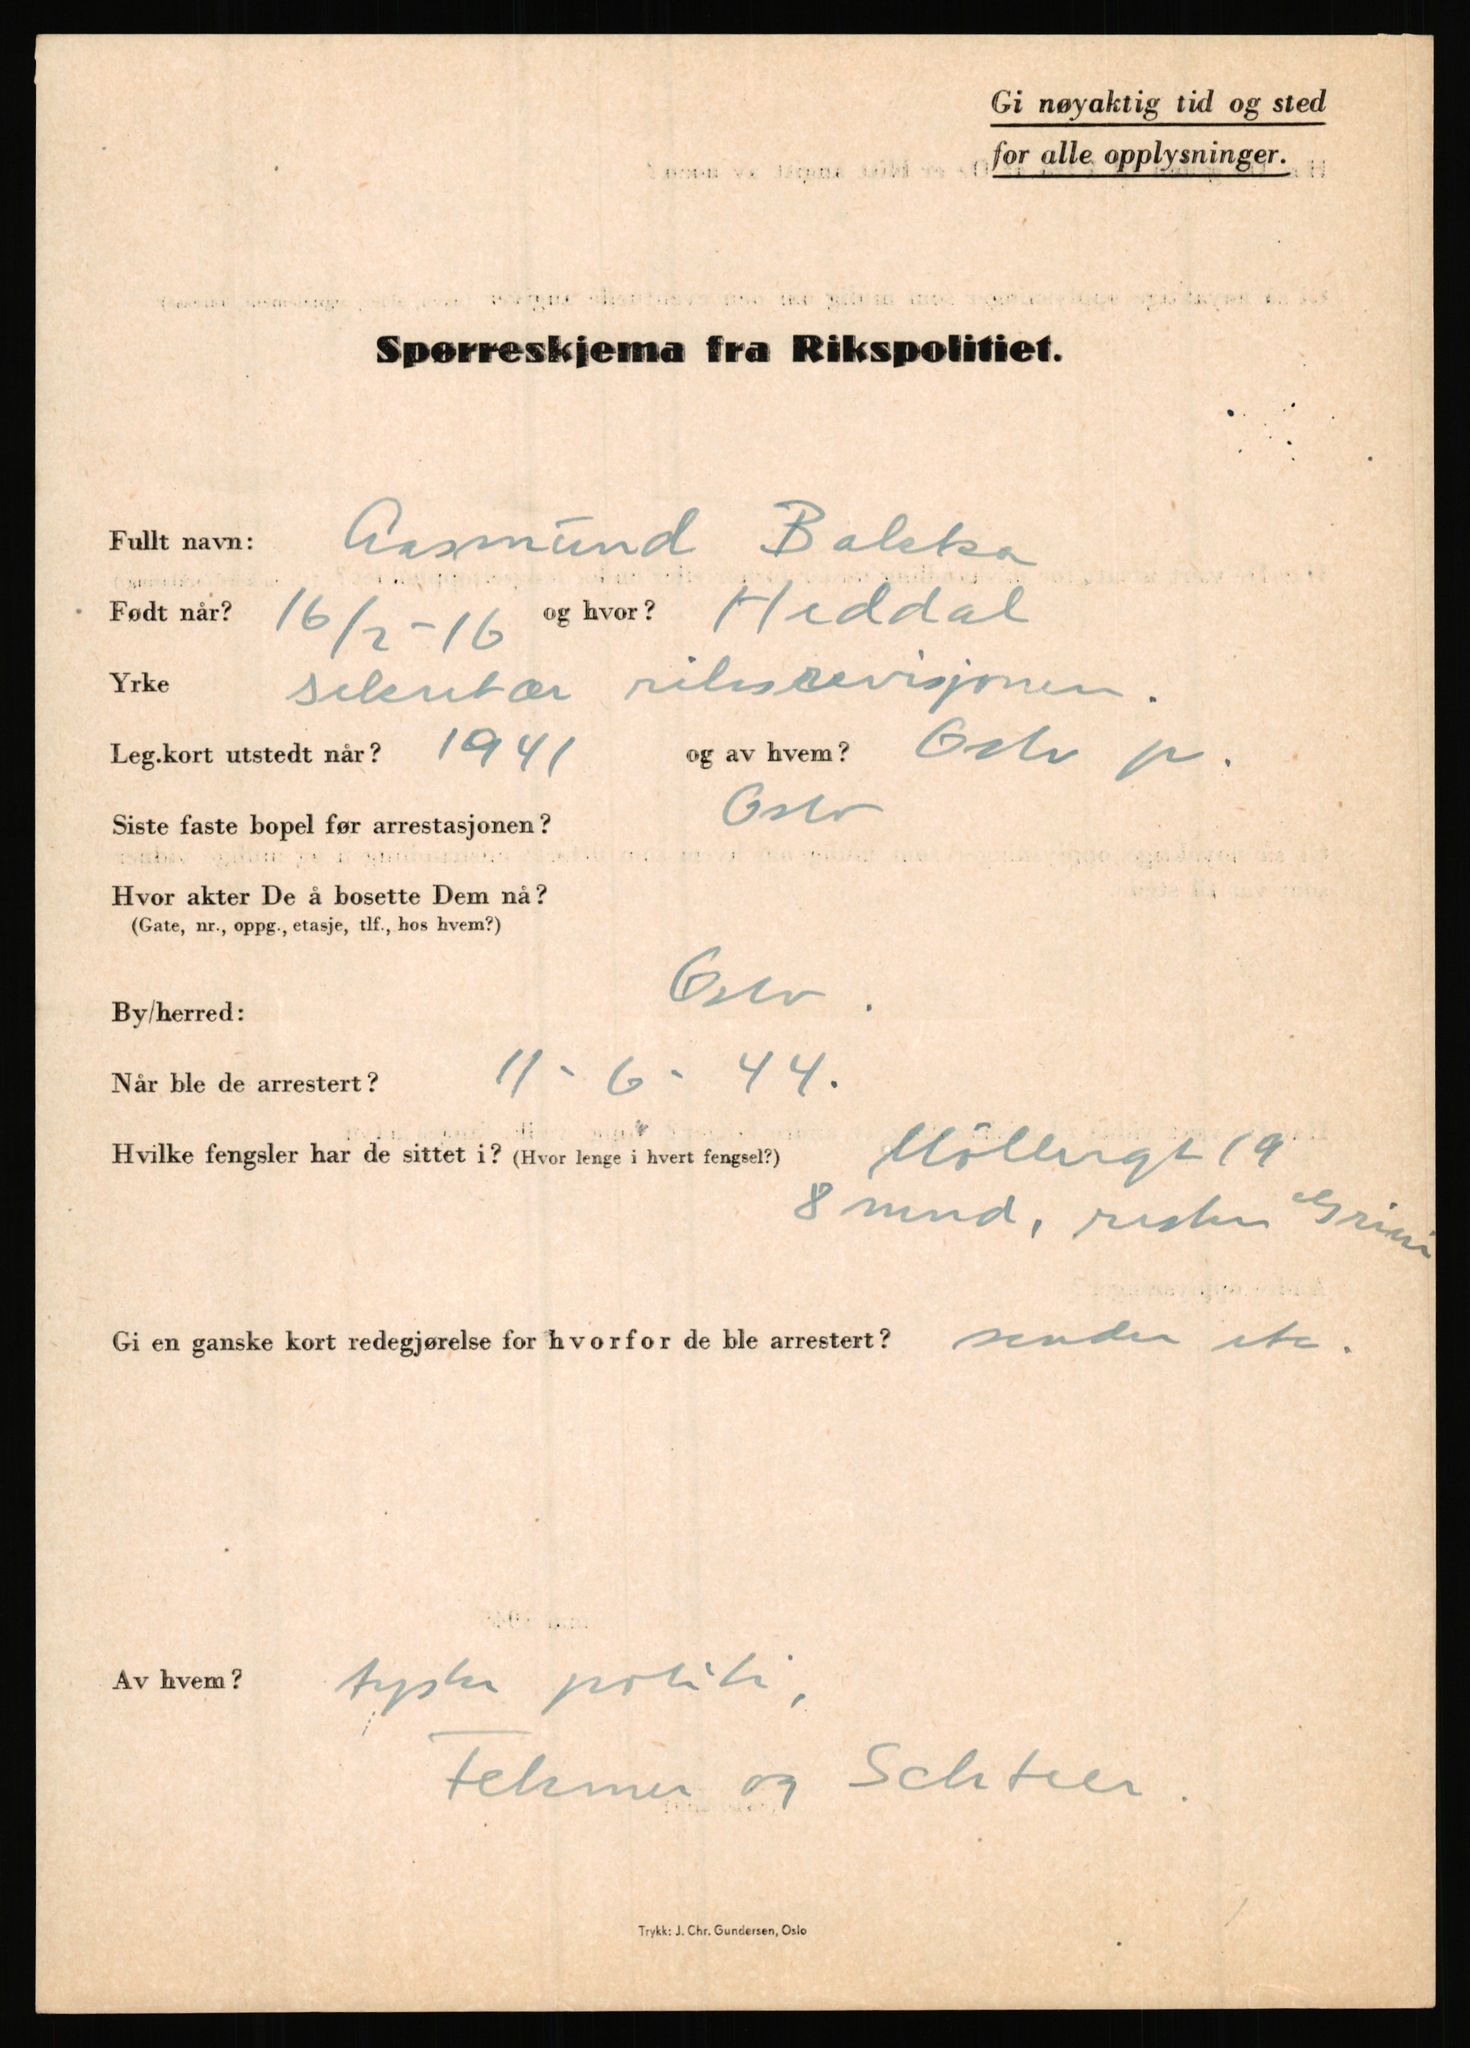 Gi nøyaktig tid og sted
for alle opplysninger.
Spørreskjema fra Rikspolitiet.
Fullt navn: Aasmund Bakka
Født når? 16/2-16 og hvor? Heddal
Yrke sekretær riksrevisjonen.
Leg.kort utstedt når? 1941 og av hvem? Oslo p.
Siste faste bopel før arrestasjonen? Oslo
Hvor akter De å bosette Dem nå?
(Gate, nr., oppg., etasje, tlf., hos hvem?)
By/herred: Oslo.
Når ble de arrestert? 11-6-44.
Hvilke fengsler har de sittet i? (Hvor lenge i hvert fengsel?) Möllergt 19
8 mnd, resten Grini
Gi en ganske kort redegjørelse for hvorfor de ble arrestert? sender etc.
Av hvem? tyske politi,
Fehmer og
Trykk: J. Chr. Gundersen, Oslo